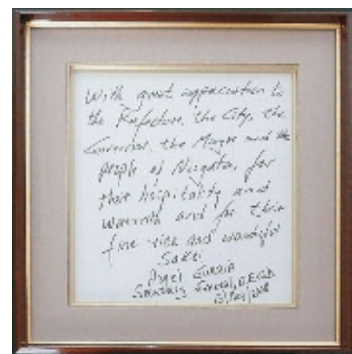 With great appreciation to
the Prefecture, the City, the
Governor, the Mayor and the
people of Niigata, for
their hospitality and
warmth and for their
fine rice and wonderful
Sake!
Angel Gurría
Secretary General, OECD